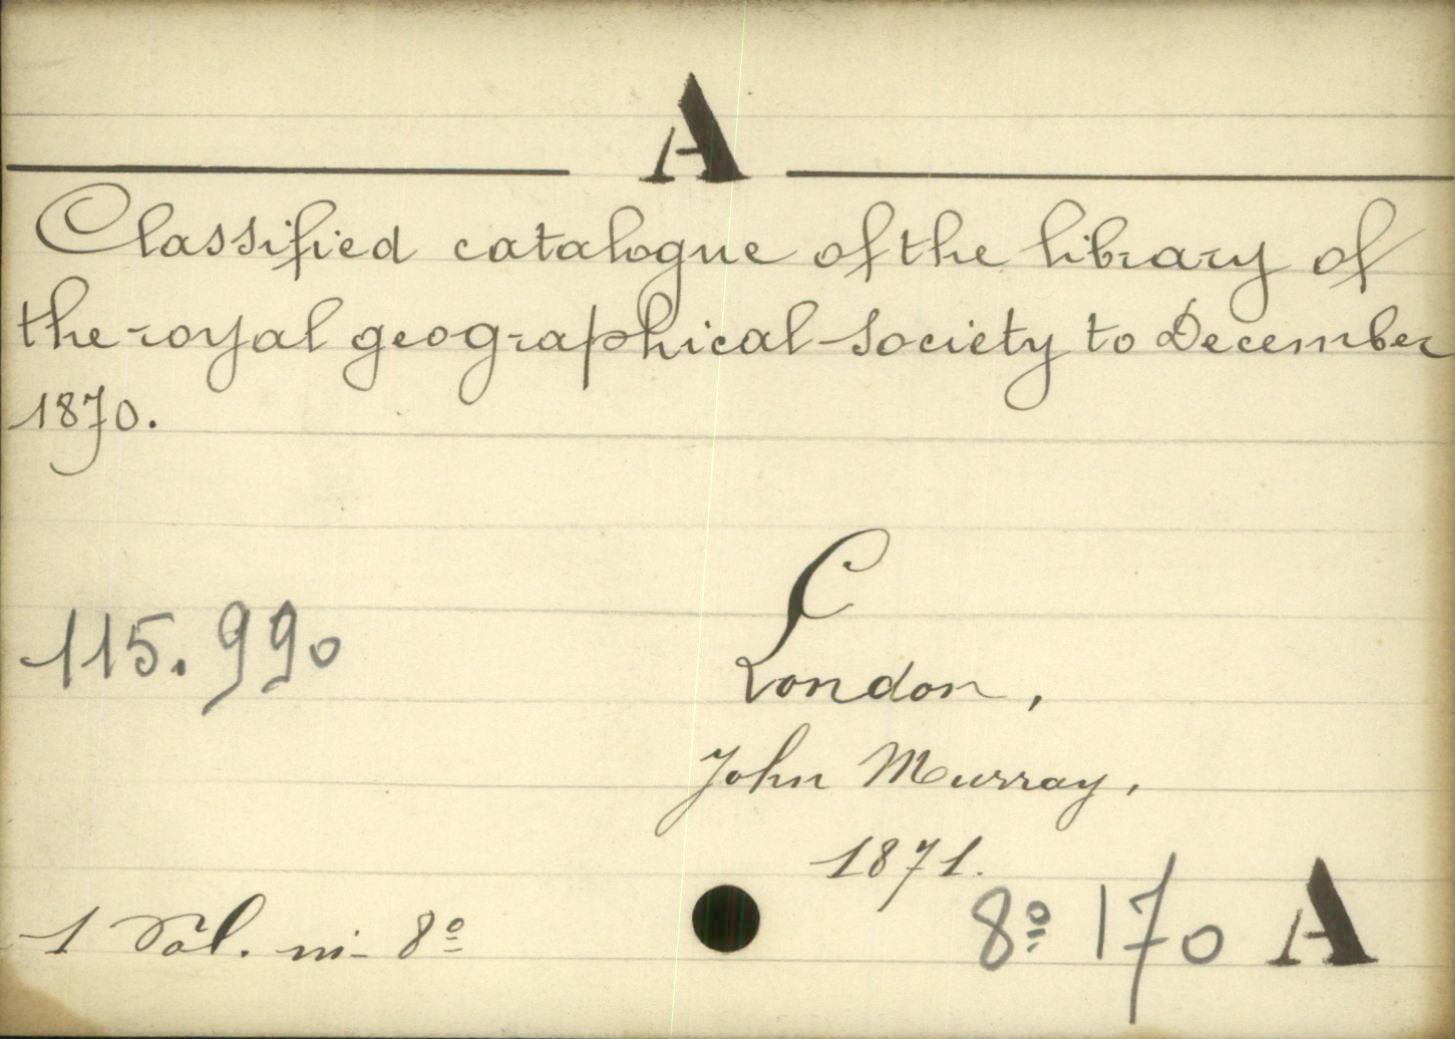 A
Classified catalogue of the library of
the royal geographical society to December
1870.
C
115.990
London,
John Murray,
1871.
1 vol. in-8º
8º 170 A